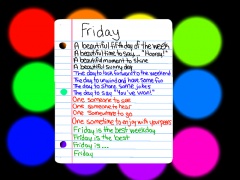 Friday
A beautiful fifth day of the week
A beautiful time to say... "Hooray!"
A beautiful moment to shine
A beautiful sunny day
The day to look forward to the weekend
The day to unwind and have some fun
The day to share some jokes
The day to say "You've won!"
One someone to see
One someone to hear
One somewhere to go
One sometime to enjoy with your peers
Friday is the best weekday
Friday is the best
Friday is...
Friday